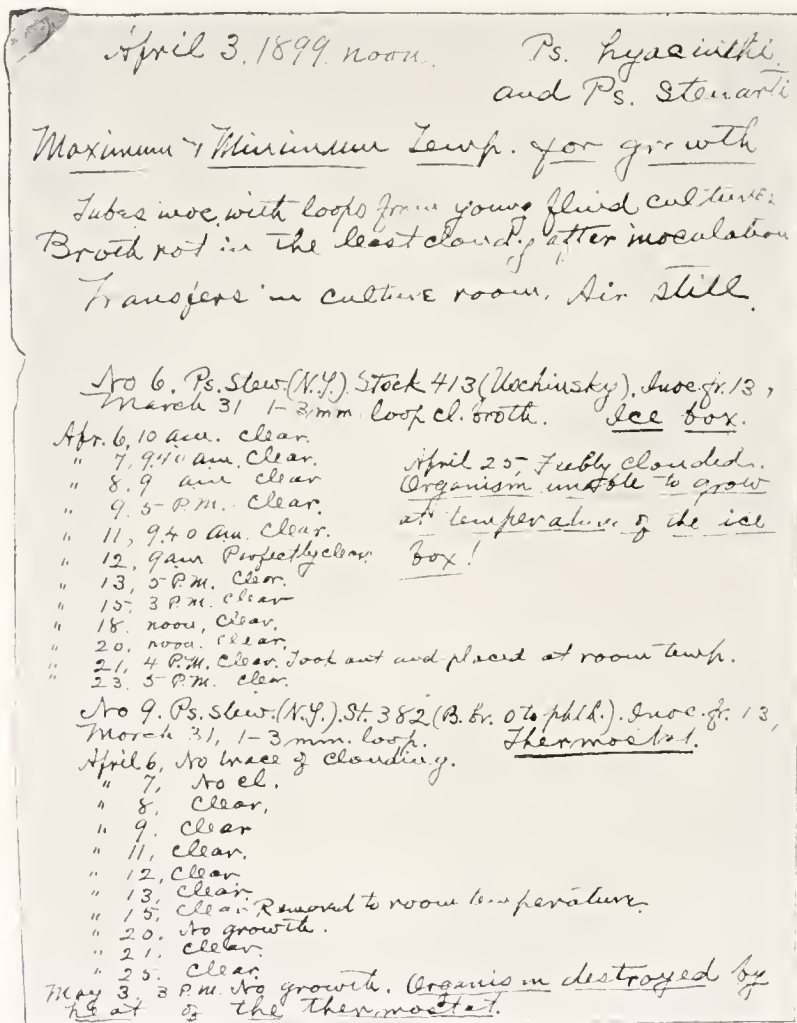 April 3, 1899. noon. Ps. hyacinthi
and Ps. Stewarti
Maximum & Minimum Temp. for growth
Tubes inoc. with loops from young fluid cultures
Broth not in the least cloudy after inoculation
Transfers in culture room. Air still.
No 6. Ps. Stew. (N.Y.) Stock 413 (Uschinsky). Inoc. fr. 13,
March 31 1-3 mm loop cl. broth. Ice box.
Apr. 6, 10 am. Clear.
" 7, 9.40 am. Clear.
" 8. 9 am Clear
" 9. 5 P.M. Clear.
" 11, 9.40 am. Clear.
" 12, 9 am Perfectly clear.
" 13, 5 P.M. Clear.
" 15. 3 P.M. Clear
" 18. noon, Clear.
" 20. noon. Clear.
" 21, 4 P.M. Clear. Took out and placed at room temp.
" 23. 5 P.M. Clear.
April 25, Feebly clouded.
Organism unable to grow
at temperature of the ice
box!
No 9. Ps. Stew. (N.Y.). St. 382 (B. br. 0 to phth.). Inoc. fr. 13,
March 31, 1-3 mm. loop. Thermostat.
April 6, No trace of clouding.
" 7, No cl.
" 8, Clear,
" 9. Clear
" 11, Clear.
" 12, Clear
" 13, Clear
" 15, Clear. Removed to room temperature.
" 20. No growth.
" 21. Clear.
" 25. Clear.
May 3. 3 P.M. No growth. Organism destroyed by
heat of the thermostat.